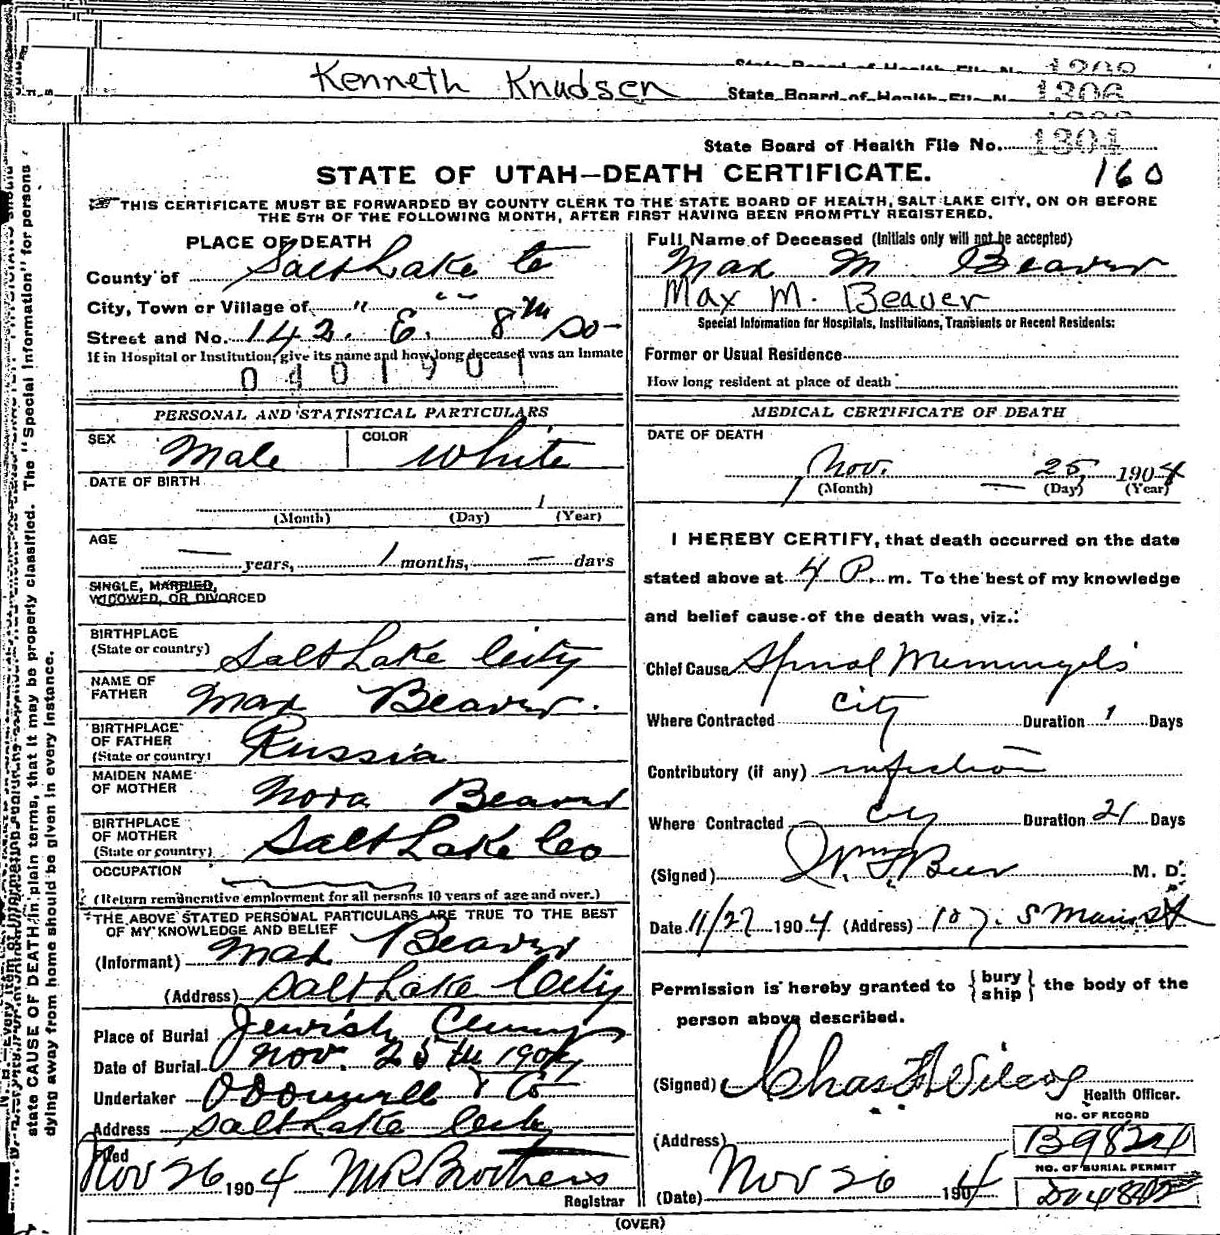 Kenneth Knudsen
State Board of Health File No. 1306
State Board of Health File No. 1304
STATE OF UTAH—DEATH CERTIFICATE.
160
THIS CERTIFICATE MUST BE FORWARDED BY COUNTY CLERK TO THE STATE BOARD OF HEALTH, SALT LAKE CITY, ON OR BEFORE
THE 5TH OF THE FOLLOWING MONTH, AFTER FIRST HAVING BEEN PROMPTLY REGISTERED.
PLACE OF DEATH
County of Salt Lake Co
City, Town or Village of " " "
Street and No. 142. E. 8th So-
If in Hospital or Institution, give its name and how long deceased was an Inmate
0401901
PERSONAL AND STATISTICAL PARTICULARS
SEX Male COLOR White
DATE OF BIRTH
1
(Month) (Day) (Year)
AGE
— years, 1 months, — days
SINGLE, MARRIED,
WIDOWED, OR DIVORCED
BIRTHPLACE
(State or country) Salt Lake City
NAME OF
FATHER Max Beaver.
BIRTHPLACE
OF FATHER
(State or country) Russia
MAIDEN NAME
OF MOTHER Nora Beaver
BIRTHPLACE
OF MOTHER
(State or country) Salt Lake Co
OCCUPATION
(Return remunerative employment for all persons 10 years of age and over.)
THE ABOVE STATED PERSONAL PARTICULARS ARE TRUE TO THE BEST
OF MY KNOWLEDGE AND BELIEF
(Informant) Max Beaver
(Address) Salt Lake City
Place of Burial Jewish
Date of Burial Nov. 25th 1904
Undertaker O'Donnell & Co
Address Salt Lake City
Filed
Nov 26 1904 Registrar
Full Name of Deceased (Initials only will not be accepted)
Max M Beaver
Max M. Beaver
Special Information for Hospitals, Institutions, Transients or Recent Residents:
Former or Usual Residence
How long resident at place of death
MEDICAL CERTIFICATE OF DEATH
DATE OF DEATH
Nov. 25, 1904
(Month) (Day) (Year)
I HEREBY CERTIFY, that death occurred on the date
stated above at 4 P. m. To the best of my knowledge
and belief cause of the death was, viz.:
Chief Cause Spinal
Where Contracted City Duration 1 Days
Contributory (if any) infection
Where Contracted City Duration 21 Days
(Signed) M. D.
Date 11/27 1904 (Address) 107. S Main St
Permission is hereby granted to {bury ship} the body of the
person above described.
(Signed) Chas F Wilcox
Health Officer.
(Address)
NO. OF RECORD
B9824
NO. OF BURIAL PERMIT
(Date) Nov 26 1904
(OVER)
state CAUSE OF DEATH in plain terms, that it may be properly classified. The "Special Information" for persons
dying away from home should be given in every instance.